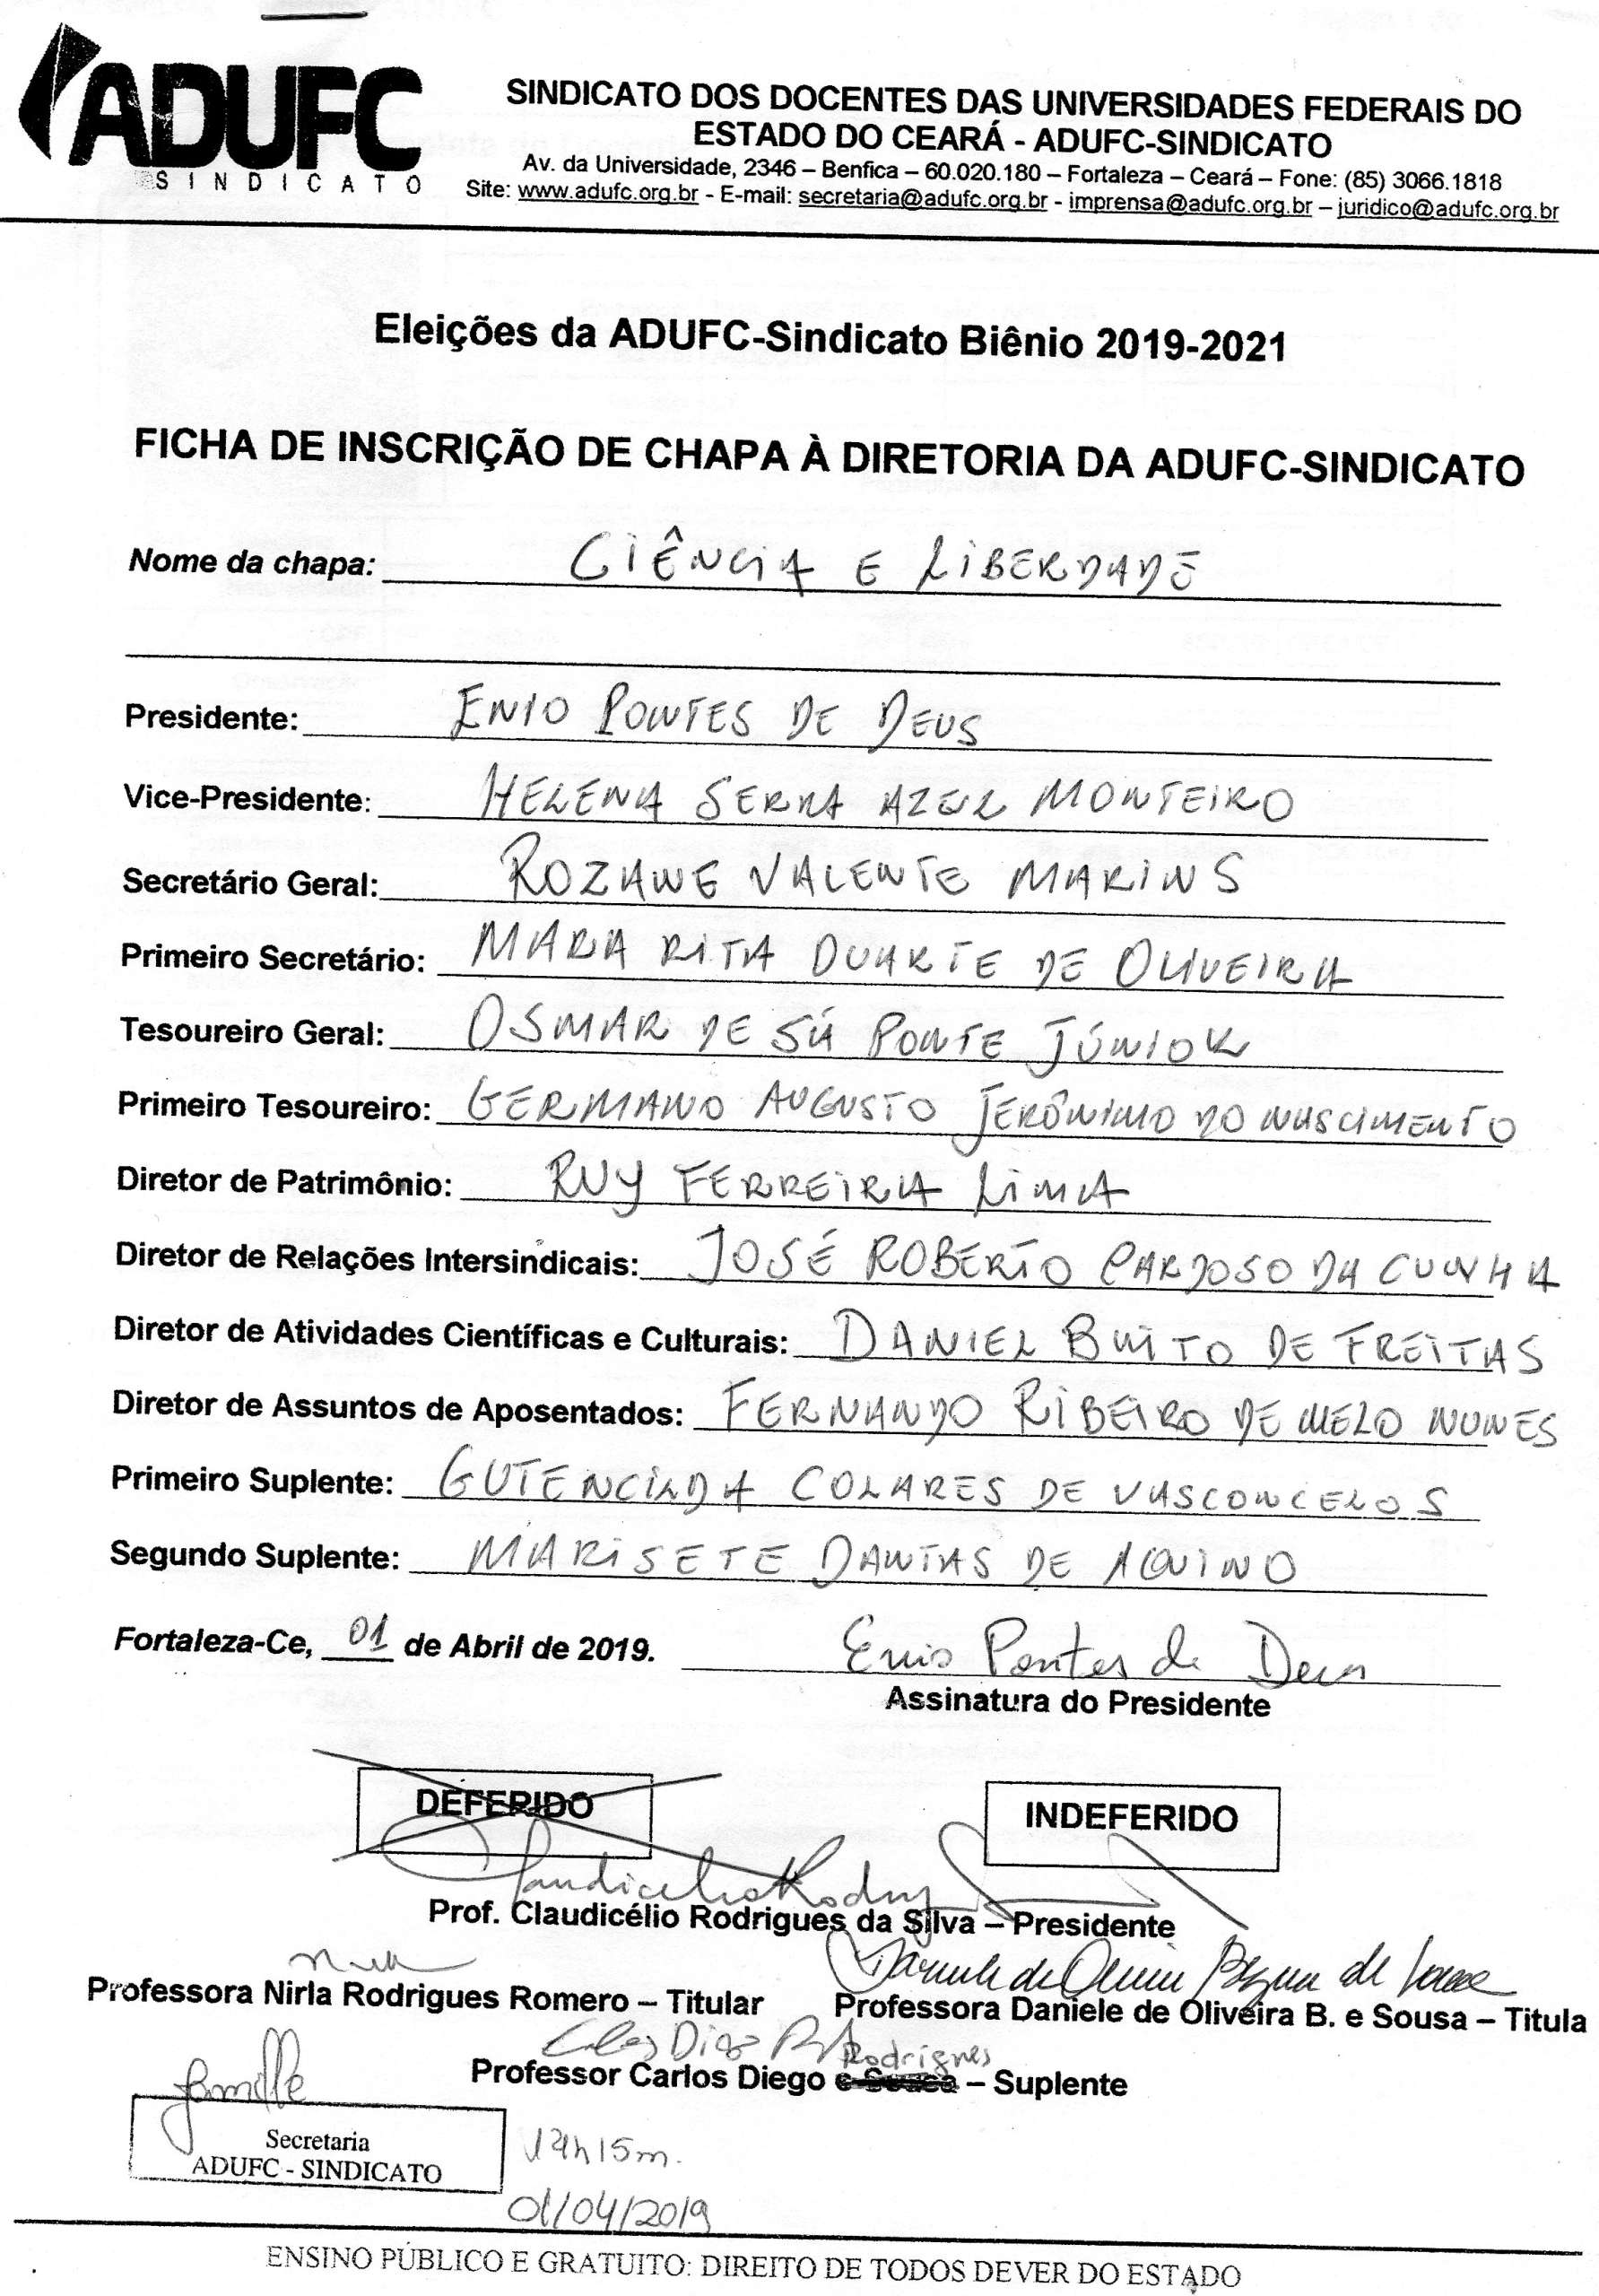 ADUFC
SINDICATO
SINDICATO DOS DOCENTES DAS UNIVERSIDADES FEDERAIS DO
ESTADO DO CEARÁ - ADUFC-SINDICATO
Av. da Universidade, 2346 – Benfica – 60.020.180 – Fortaleza – Ceará – Fone: (85) 3066.1818
Site: www.adufc.org.br - E-mail: secretaria@adufc.org.br - imprensa@adufc.org.br – juridico@adufc.org.br
Eleições da ADUFC-Sindicato Biênio 2019-2021
FICHA DE INSCRIÇÃO DE CHAPA À DIRETORIA DA ADUFC-SINDICATO
Nome da chapa: CIÊNCIA E LIBERDADE
Presidente: ENIO PONTES DE DEUS
Vice-Presidente: HELENA SERRA AZUL MONTEIRO
Secretário Geral: ROZANE VALENTE MARINS
Primeiro Secretário: MARA RITA DUARTE DE OLIVEIRA
Tesoureiro Geral: OSMAR DE SÁ PONTE JÚNIOR
Primeiro Tesoureiro: GERMANO AUGUSTO JERÔNIMO DO NASCIMENTO
Diretor de Patrimônio: RUY FERREIRA LIMA
Diretor de Relações Intersindicais: JOSÉ ROBERTO CARDOSO DA CUNHA
Diretor de Atividades Científicas e Culturais: DANIEL BRITO DE FREITAS
Diretor de Assuntos de Aposentados: FERNANDO RIBEIRO DE MELO NUNES
Primeiro Suplente: GUTENCILDA COLARES DE VASCONCELOS
Segundo Suplente: MARISETE DANTAS DE AQUINO
Fortaleza-Ce, 01 de Abril de 2019. Enio Pontes de Deus
Assinatura do Presidente
DEFERIDO INDEFERIDO
Claudicélio Rodrigues
Prof. Claudicélio Rodrigues da Silva – Presidente
Professora Nirla Rodrigues Romero – Titular Professora Daniele de Oliveira B. e Sousa – Titula
Carlos Diego Rodrigues
Professor Carlos Diego – Suplente
Secretaria
ADUFC - SINDICATO
h15m.
01/04/2019
ENSINO PÚBLICO E GRATUITO: DIREITO DE TODOS DEVER DO ESTADO